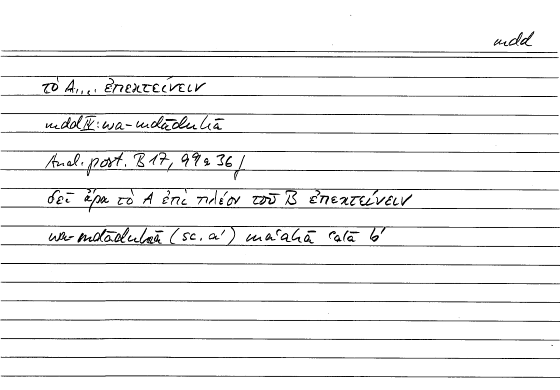 mdd
τὸ A.... ἐπεκτείνειν
mdd IV: wa-mdāduhā
Anal. post. B 17, 99 a 36 f
δεῖ ἄρα τὸ A ἐπὶ πλέον τοῦ B ἐπεκτείνειν
wa-mdāduhā (sc. a') ma'ahā 'alā b'